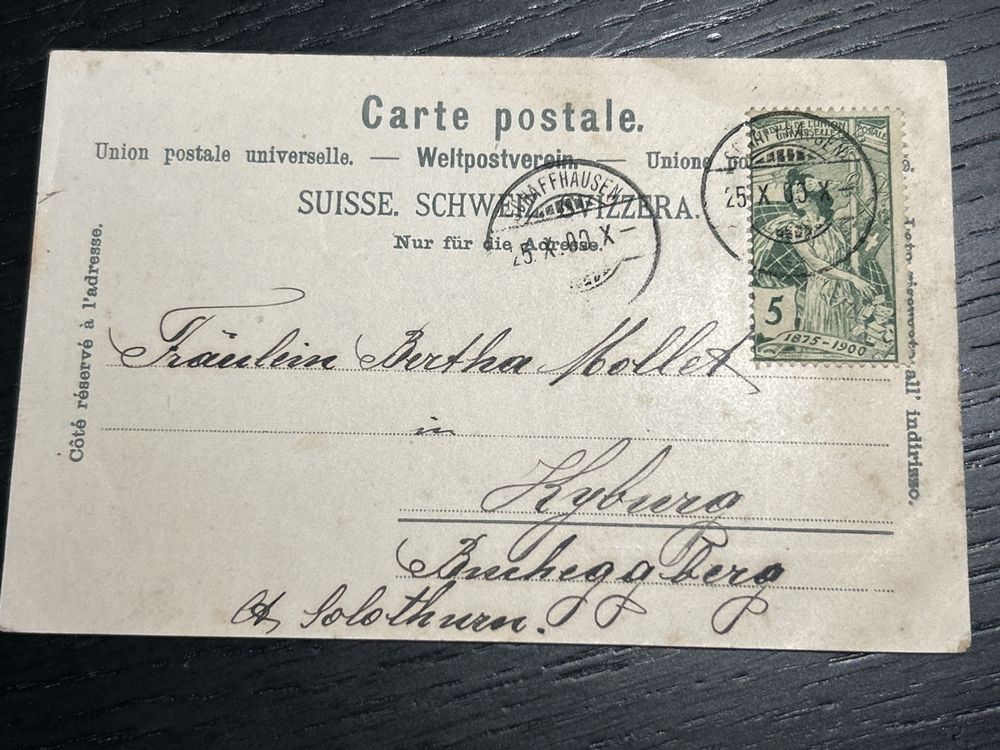 Carte postale.
Union postale universelle. — Weltpostverein. — Unione
SUISSE. SCHWEIZ. SVIZZERA.
Nur für die Adresse.
SCHAFFHAUSEN
25. X. 00. X –
25. X. 00. X –
UNIVERSELLE
POSTALE
5
1875-1900
Côté réservé à l'adresse.
all' indirisso.
Fräulein Bertha Mollet
in
Kyburg
Bucheggberg
Ct. Solothurn.